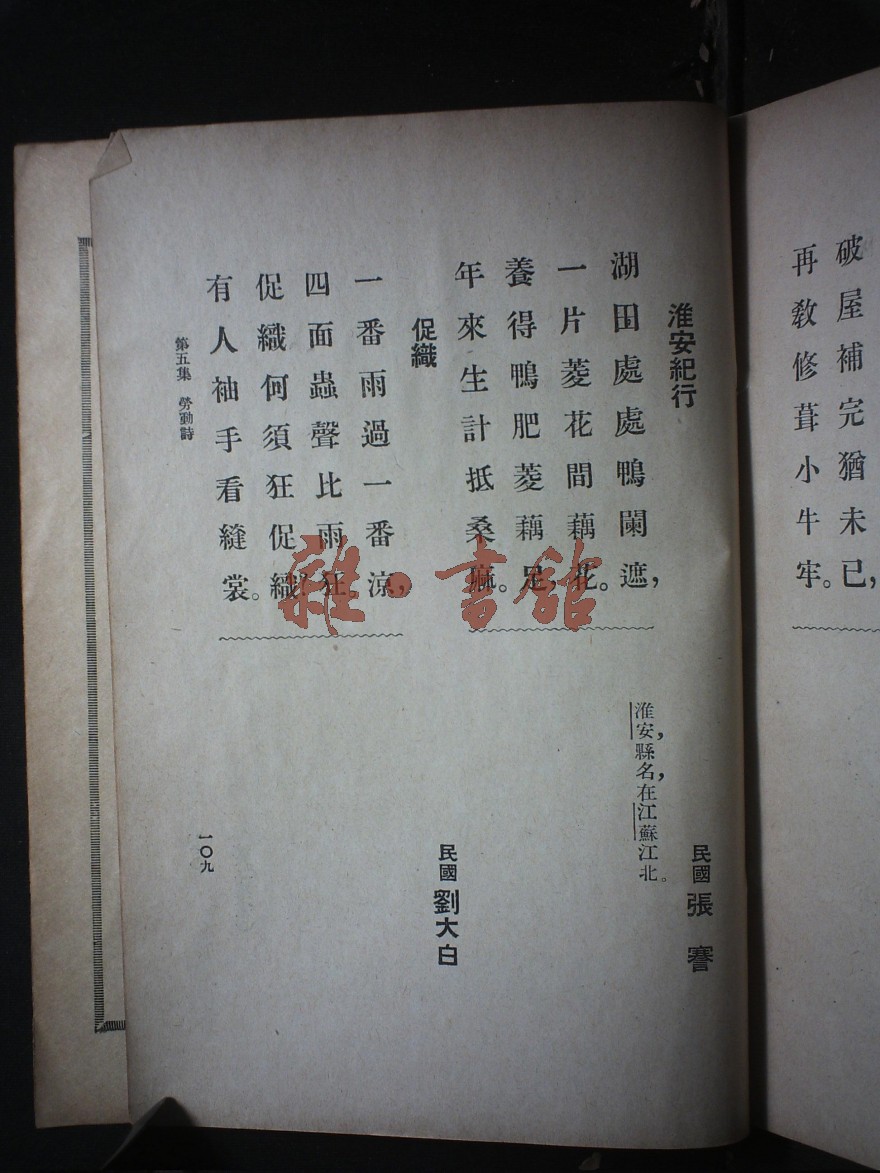 破屋補完猶未已，
再敎修葺小牛牢。
淮安紀行
民國 張謇
湖田處處鴨闌遮，
一片菱花間藕花。
養得鴨肥菱藕足，
年來生計抵桑麻。
淮安，縣名，在江蘇江北。
促織
民國 劉大白
一番雨過一番涼，
四面蟲聲比雨狂。
促織何須狂促織！
有人袖手看縫裳。
第五集 勞動詩
一〇九
雜·書館